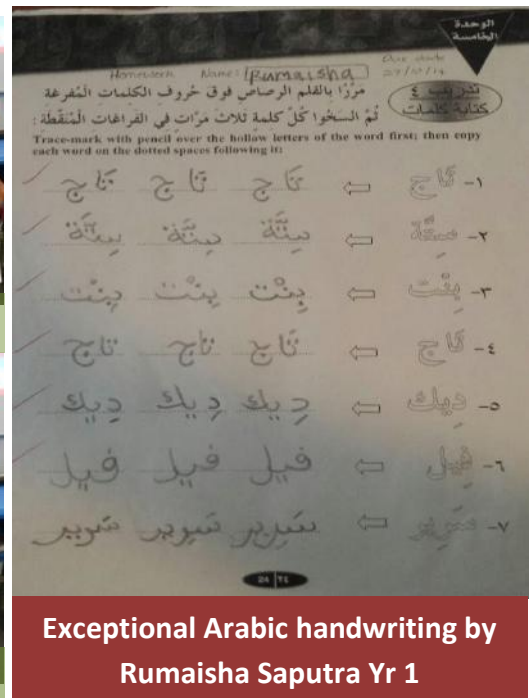 الوحدة
الخامسة
Homework Name: Rumaisha
Due date
تدريب ٤
كتابة كلمات
مَرِّرُوا بالقلم الرصاص فوق حروف الكلمات المُفرغة
ثُمَّ انسخُوا كُلَّ كلمة ثلاث مَرَّات في الفراغات المُنقَّطة :
Trace-mark with pencil over the hollow letters of the word first; then copy
each word on the dotted spaces following it:
١- تَاج ⇦ تَاج تَاج تَاج
٢- سِتَّة ⇦ سِتَّة سِتَّة سِتَّة
٣- بِنْت ⇦ بِنْت بِنْت بِنْت
٤- تَاج ⇦ تَاج تاج تاج
٥- دِيك ⇦ دِيك دِيك دِيك
٦- فِيل ⇦ فيل فيل فيل
٧- سَرِير ⇦ سَرِير سَرير سَرير
24 ٢٤
Exceptional Arabic handwriting by
Rumaisha Saputra Yr 1